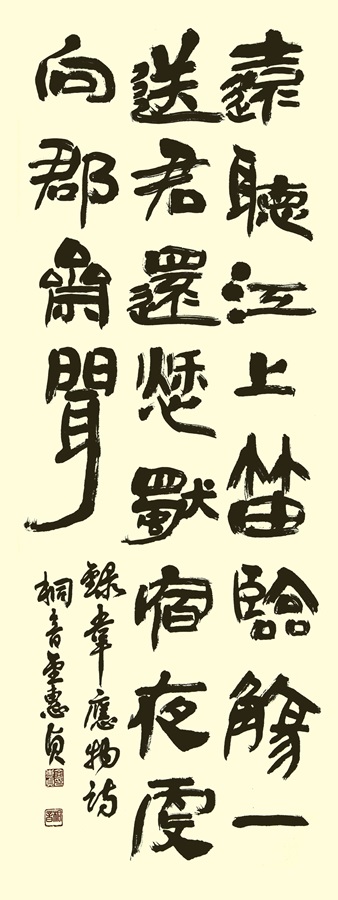 遠聽江上笛臨觴一
送君還愁獨宿夜更
向郡齋聞
錄韋應物詩
桐音金惠貞